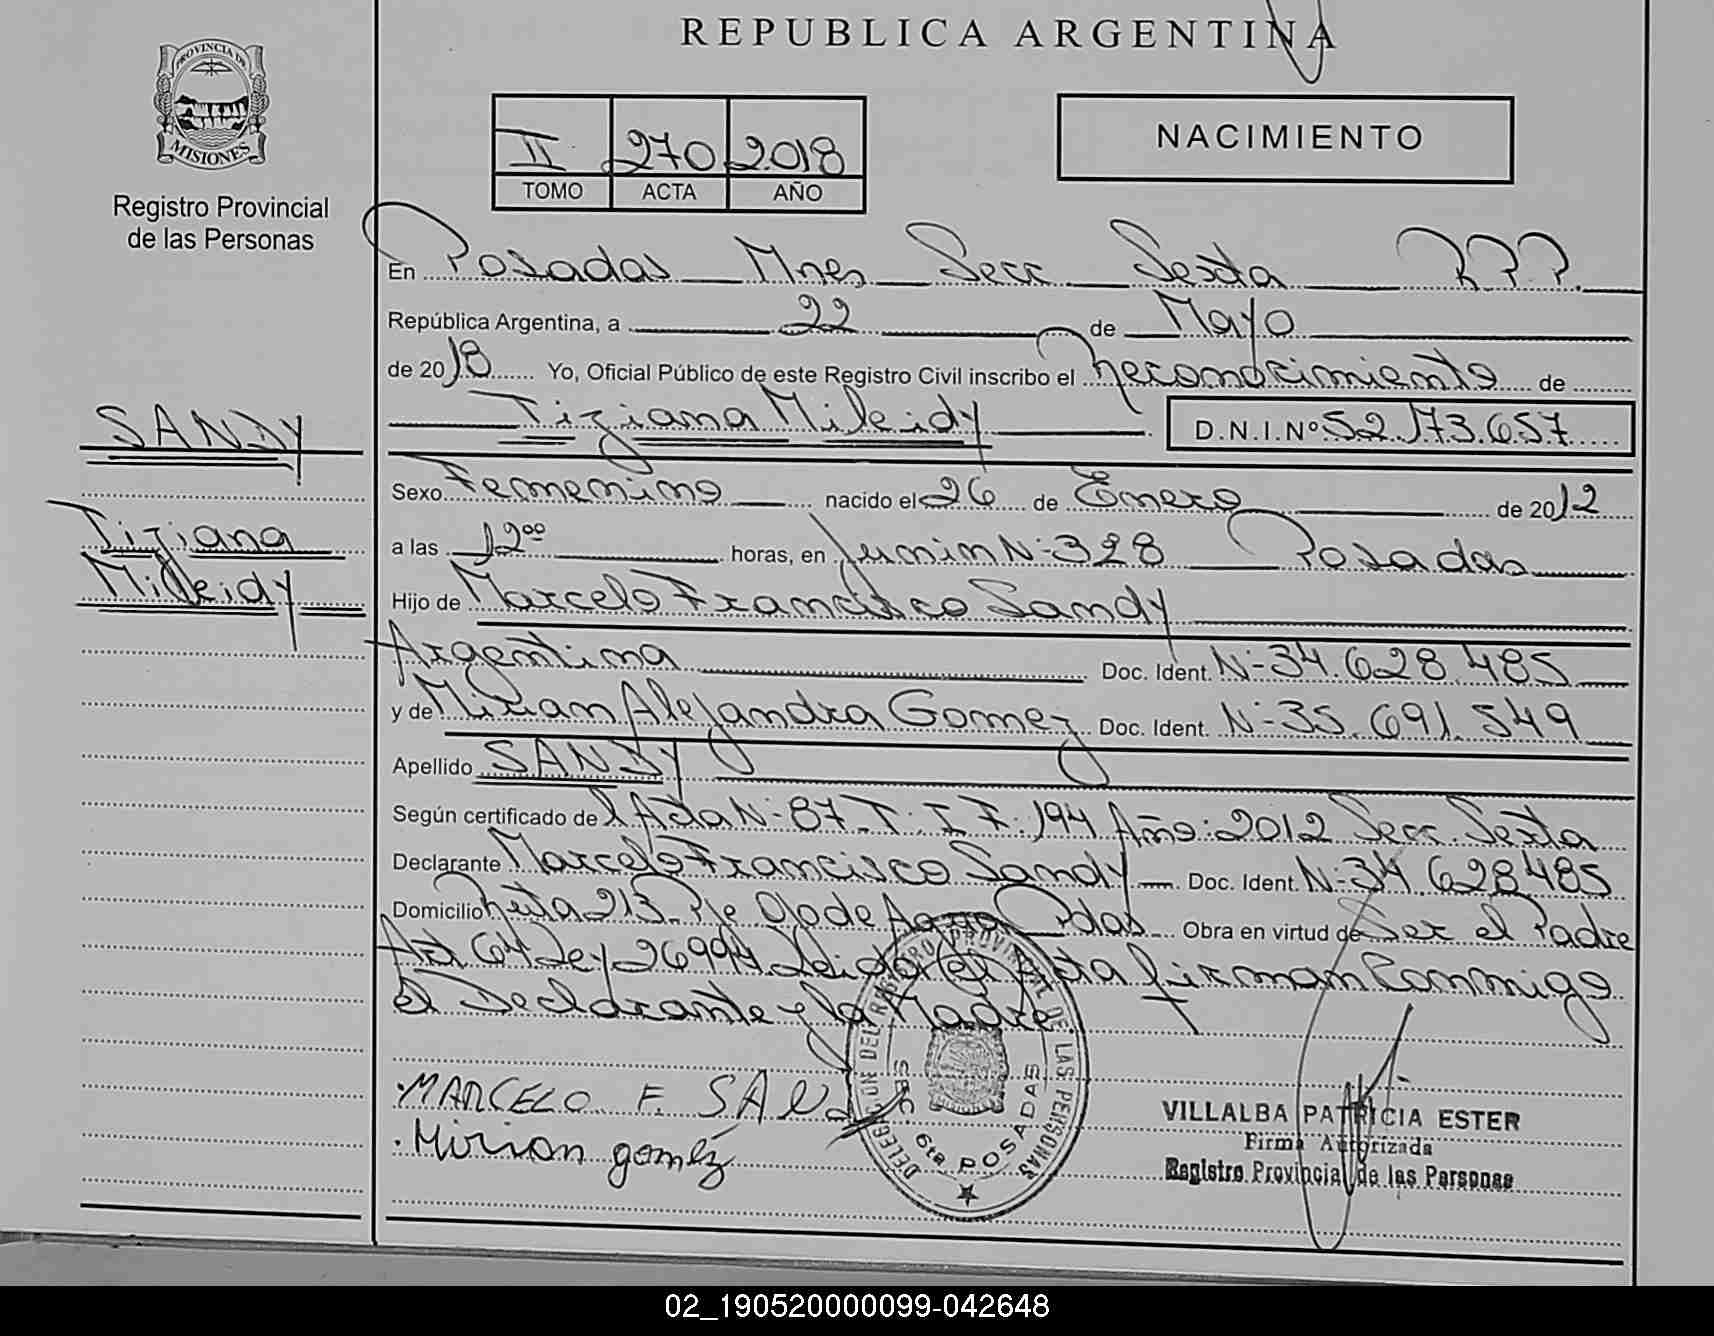 REPUBLICA ARGENTINA
PROVINCIA DE
MISIONES
Registro Provincial
de las Personas
II 270 2018
TOMO ACTA AÑO
NACIMIENTO
En Posadas Mnes Secc Sexta R.P.P.
República Argentina, a 22 de Mayo
de 2018 Yo, Oficial Público de este Registro Civil inscribo el Reconocimiento de
Tiziana Mileidy D.N.I.Nº 52.173.657
SANDY
Tiziana
Mileidy
Sexo Femenino nacido el 26 de Enero de 2012
a las 12 00 horas, en Junin N- 328 Posadas
Hijo de Marcelo Francisco Sandy
Argentina Doc. Ident. N- 34.628.485
y de Mirian Alejandra Gomez Doc. Ident. N- 35.691.549
Apellido SANDY
Según certificado del Acta N- 87 T: I F: 194 Año: 2012 Secc. Sexta
Declarante Marcelo Francisco Sandy Doc. Ident. N- 34 628485
Domicilio 213 Ojo de Agua Pdas Obra en virtud de Ser el Padre
Art 64 Ley 26994 Leida el Acta firman Conmigo
el Declarante y la Madre
MARCELO F. SAND
Mirian goméz
DELEGACION DEL REGISTRO PROVINCIAL DE LAS PERSONAS
SEC 6ta POSADAS
VILLALBA PATRICIA ESTER
Firma Autorizada
Registro Provincial de las Personas
02_190520000099-042648